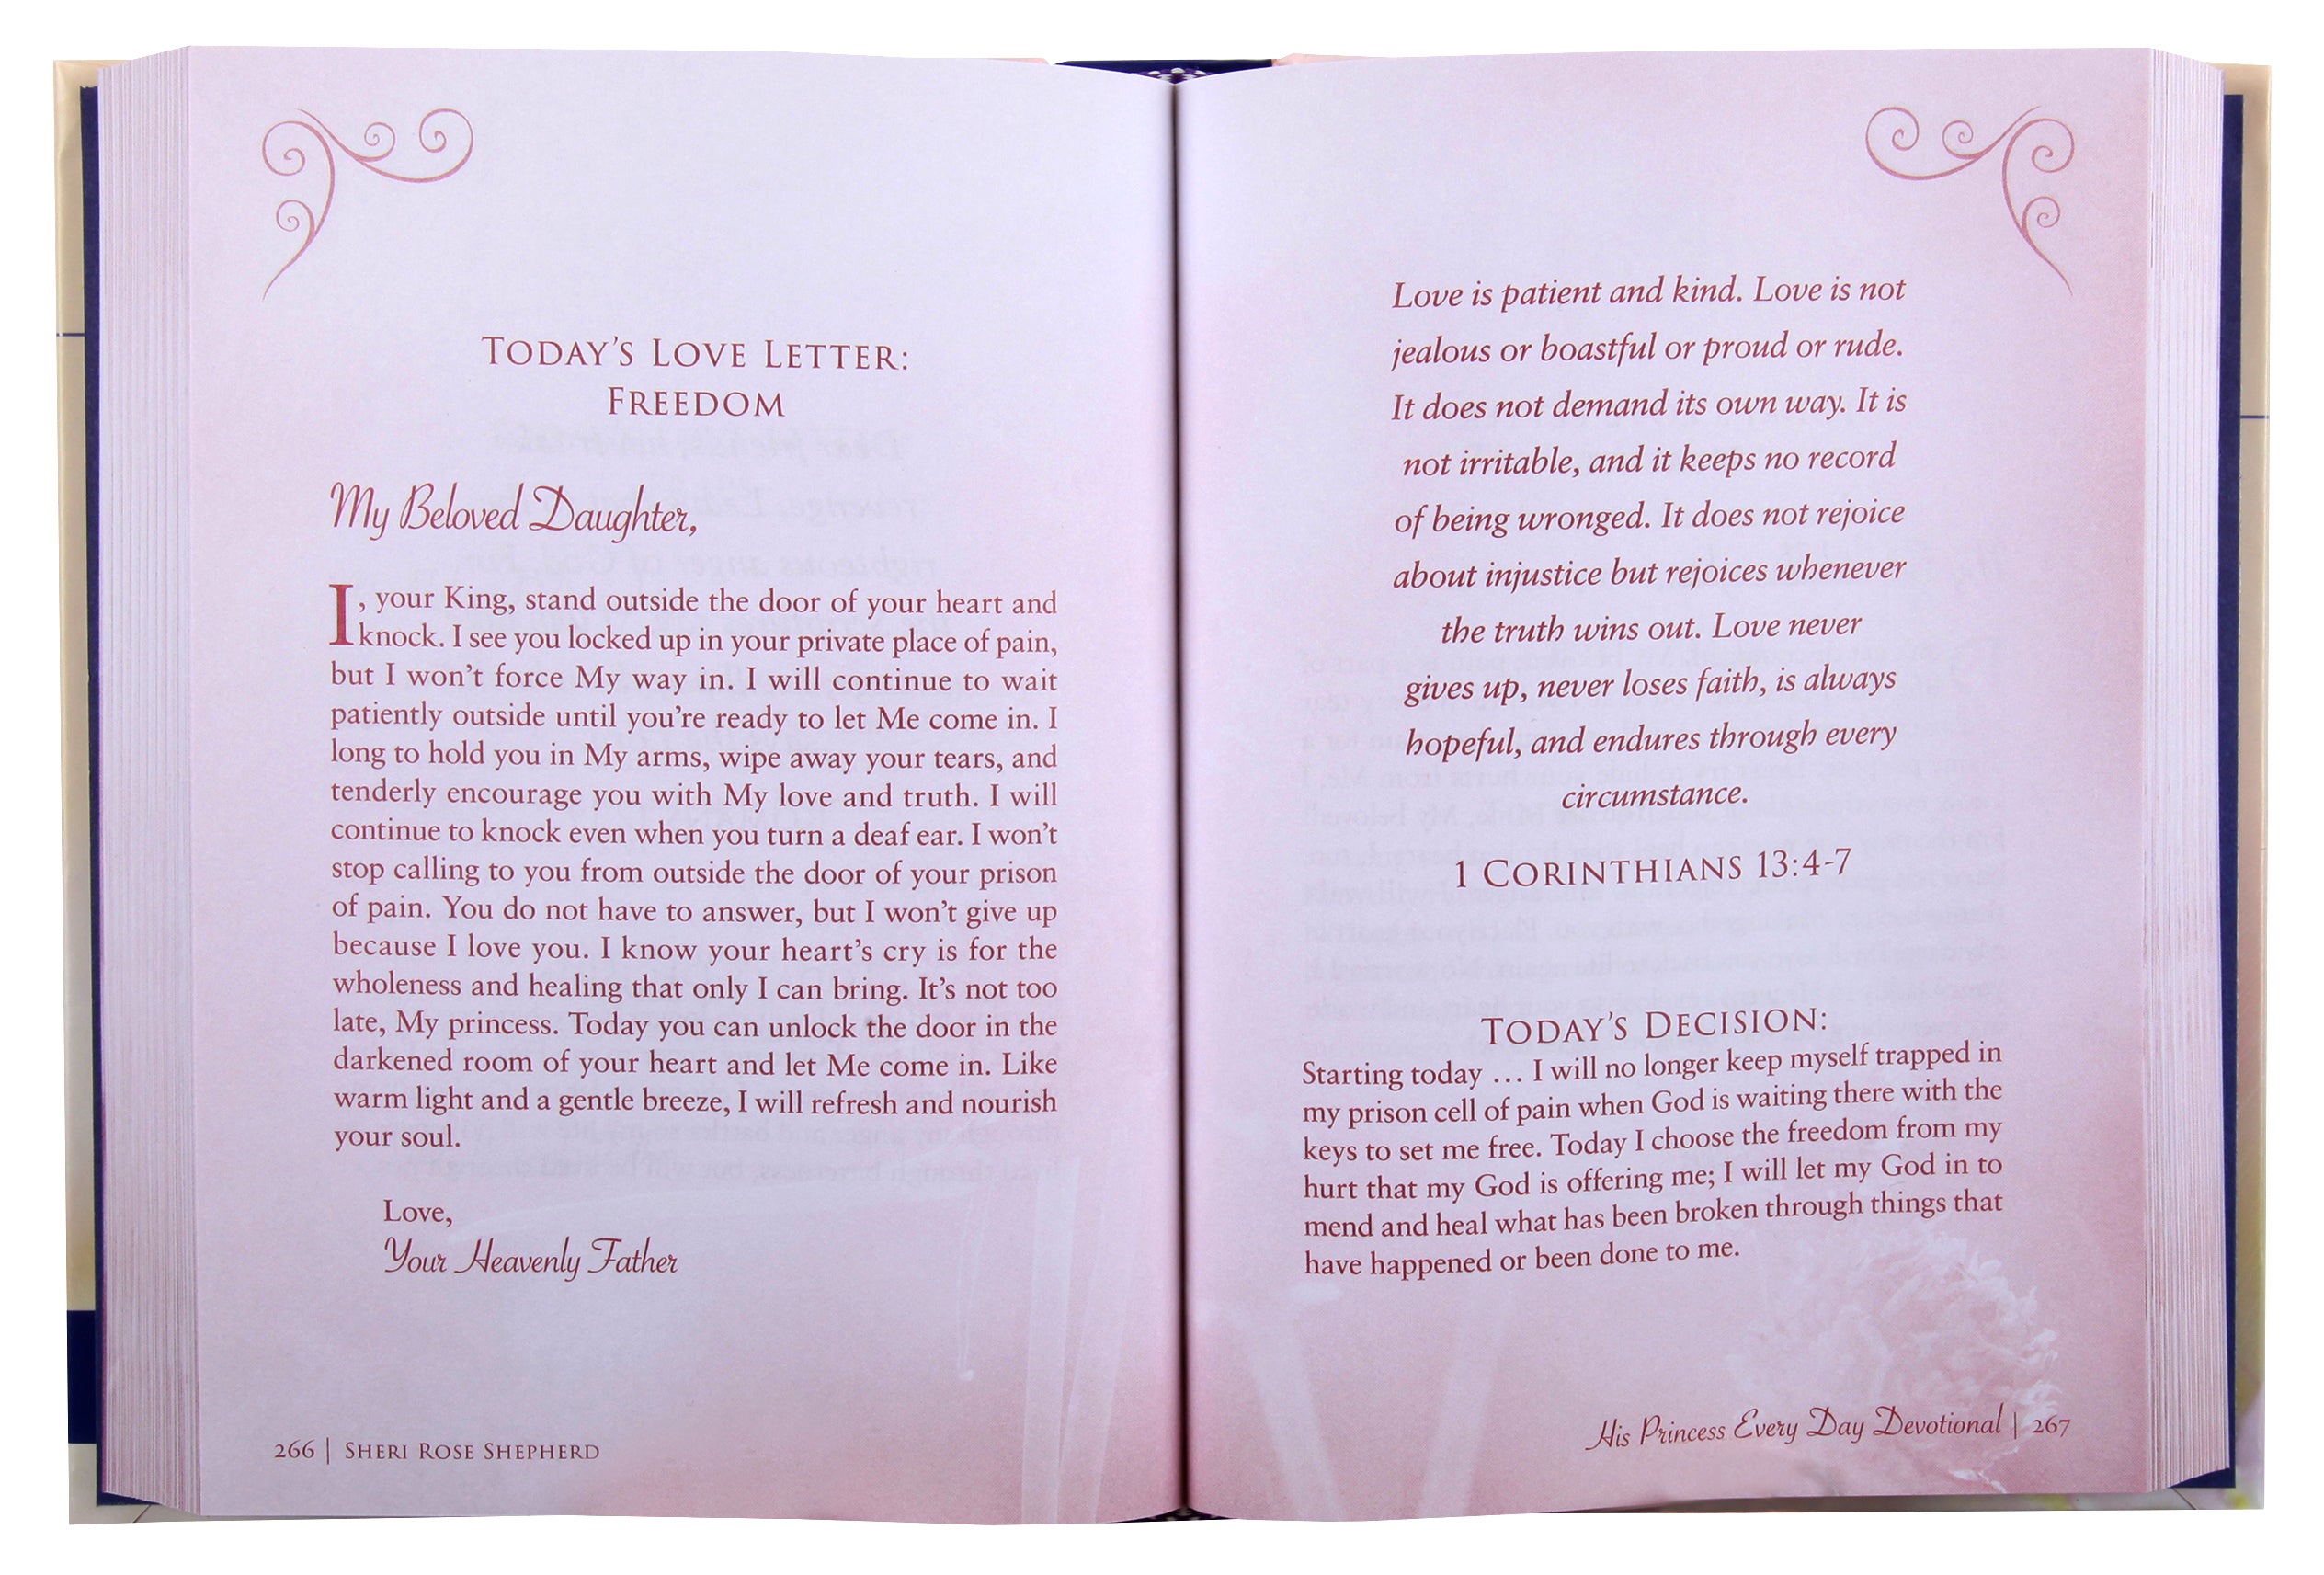 TODAY'S LOVE LETTER:
FREEDOM
My Beloved Daughter,
I, your King, stand outside the door of your heart and
knock. I see you locked up in your private place of pain,
but I won't force My way in. I will continue to wait
patiently outside until you're ready to let Me come in. I
long to hold you in My arms, wipe away your tears, and
tenderly encourage you with My love and truth. I will
continue to knock even when you turn a deaf ear. I won't
stop calling to you from outside the door of your prison
of pain. You do not have to answer, but I won't give up
because I love you. I know your heart's cry is for the
wholeness and healing that only I can bring. It's not too
late, My princess. Today you can unlock the door in the
darkened room of your heart and let Me come in. Like
warm light and a gentle breeze, I will refresh and nourish
your soul.
Love,
Your Heavenly Father
266 | SHERI ROSE SHEPHERD
Love is patient and kind. Love is not
jealous or boastful or proud or rude.
It does not demand its own way. It is
not irritable, and it keeps no record
of being wronged. It does not rejoice
about injustice but rejoices whenever
the truth wins out. Love never
gives up, never loses faith, is always
hopeful, and endures through every
circumstance.
1 CORINTHIANS 13:4-7
TODAY'S DECISION:
Starting today … I will no longer keep myself trapped in
my prison cell of pain when God is waiting there with the
keys to set me free. Today I choose the freedom from my
hurt that my God is offering me; I will let my God in to
mend and heal what has been broken through things that
have happened or been done to me.
His Princess Every Day Devotional | 267